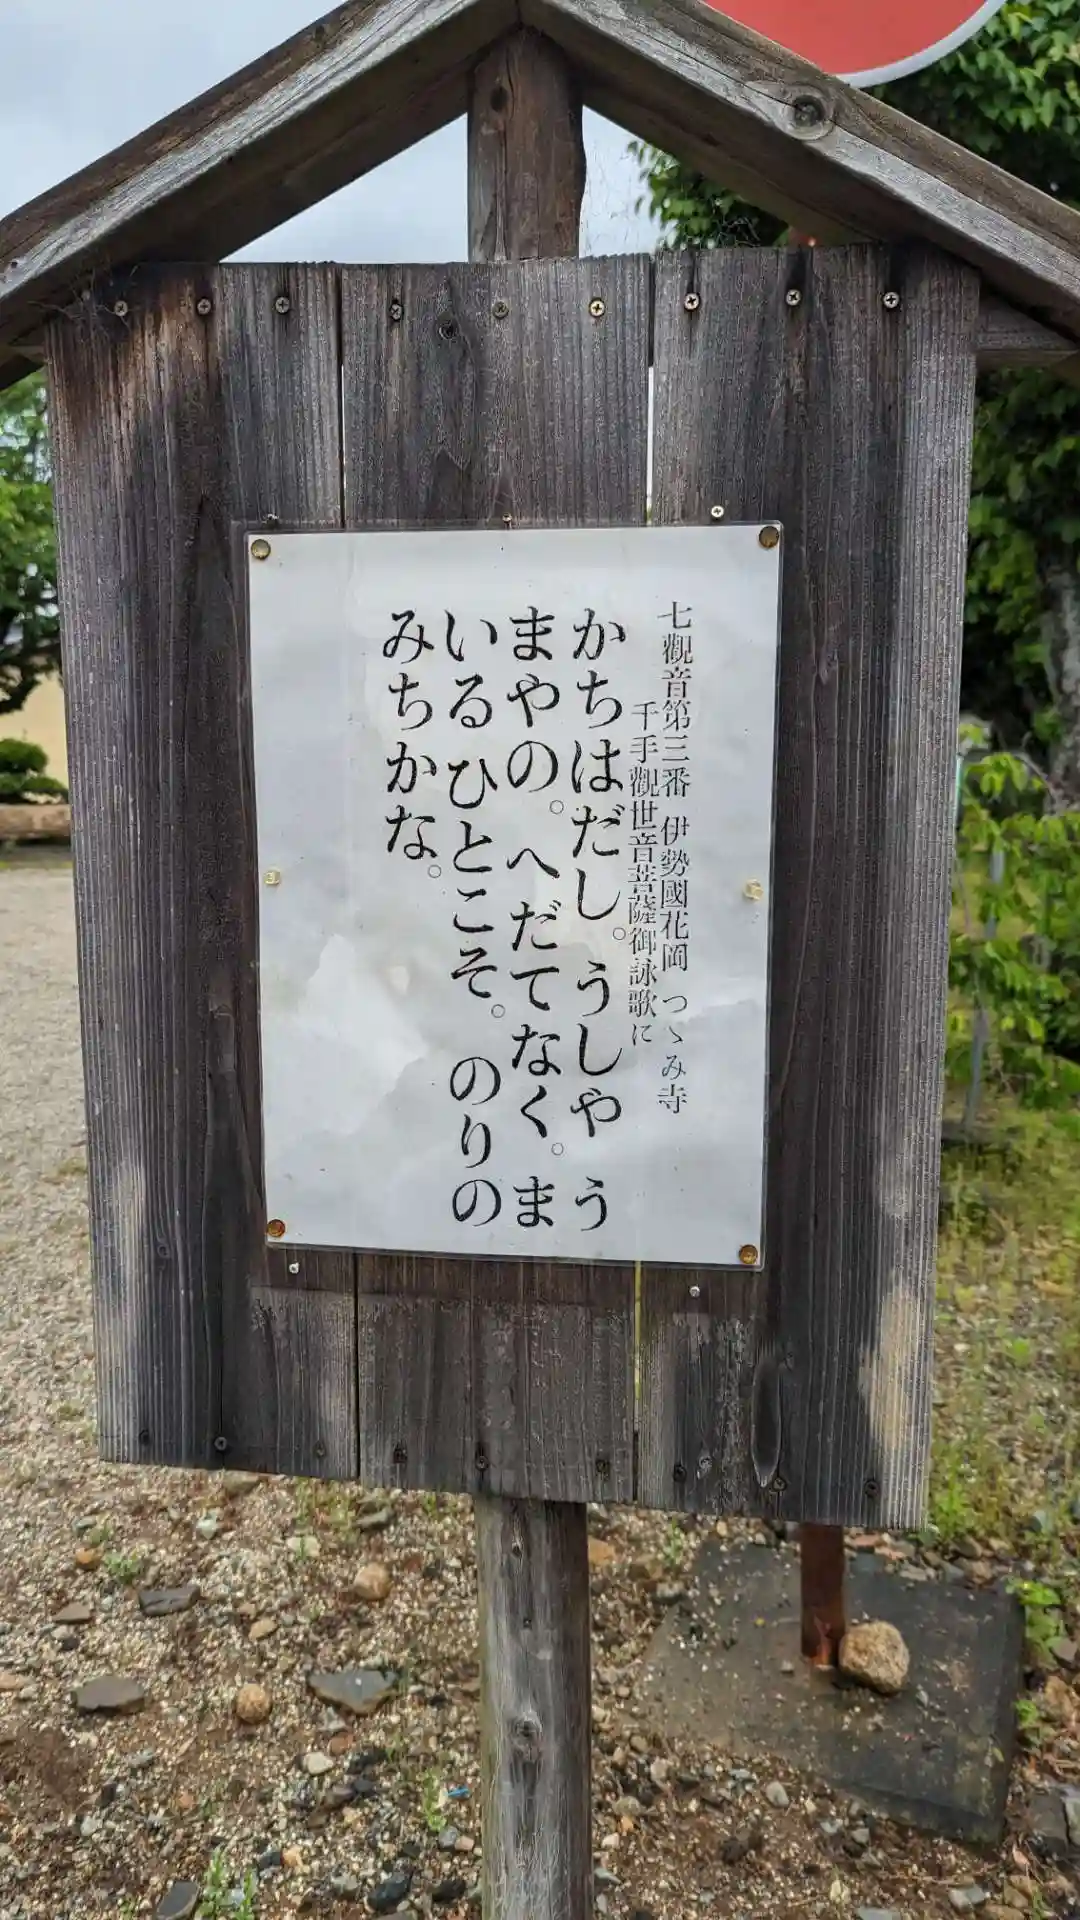 七觀音第三番 伊勢國花岡 つゝみ寺
千手觀世音菩薩御詠歌に
かちはだし。うしやう
まやの。へだてなく。ま
いるひとこそ。のりの
みちかな。